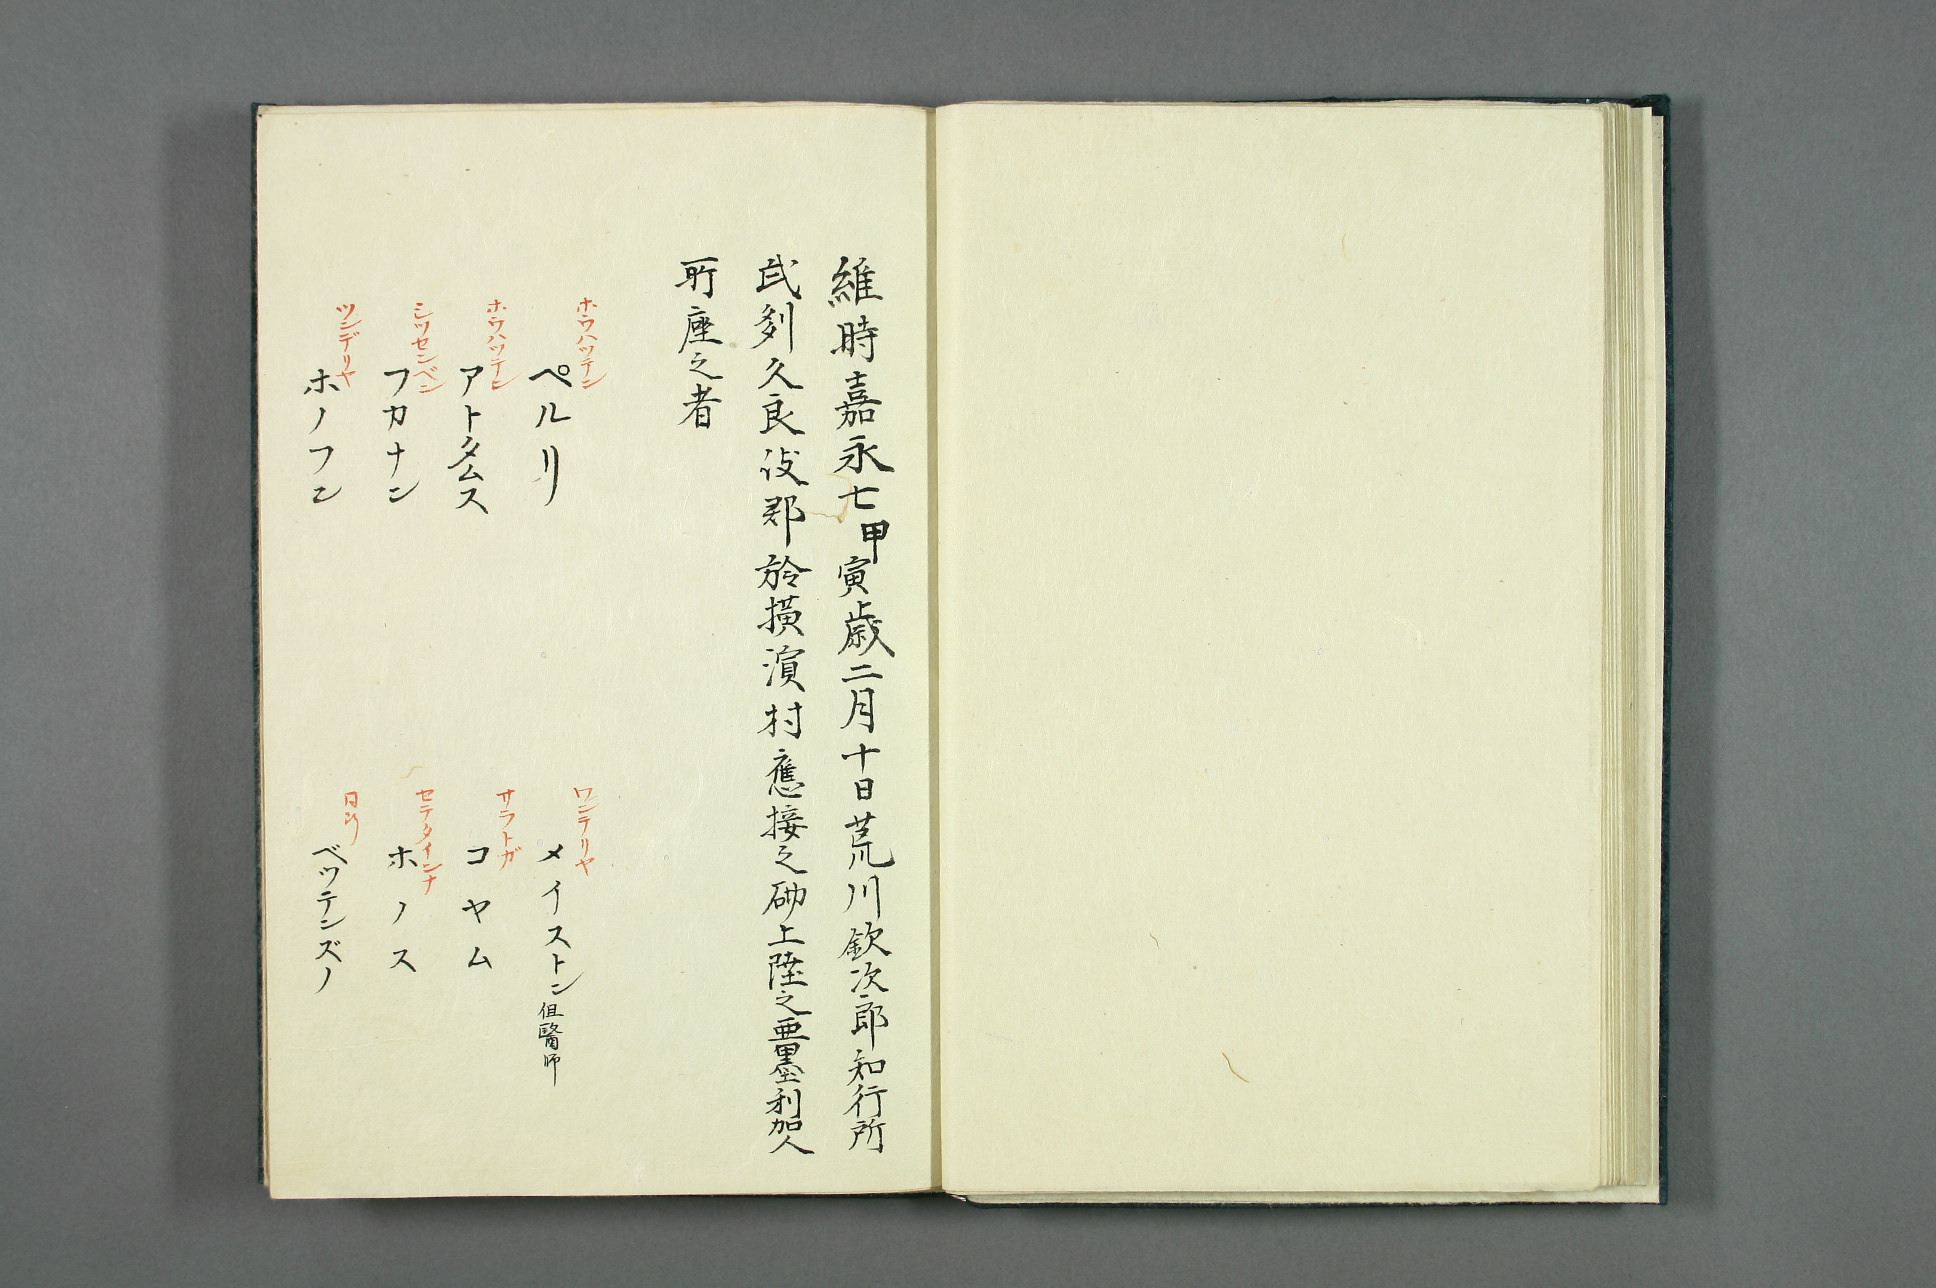 維時嘉永七甲寅歳二月十日荒川欽次郎知行所
武刕久良伎郡於横濵村應接之砌上陸之亜墨利加人
所座之者
ホウハツテン
ペルリ
ワンテリヤ
メイストン 但醫師
ホウハツテン
アトタムス
サラトガ
コヤム
シツセンベン
フカナン
セテタインナ
ホノス
ツンデリヤ
ホノフン
同断
ベツテンズノ